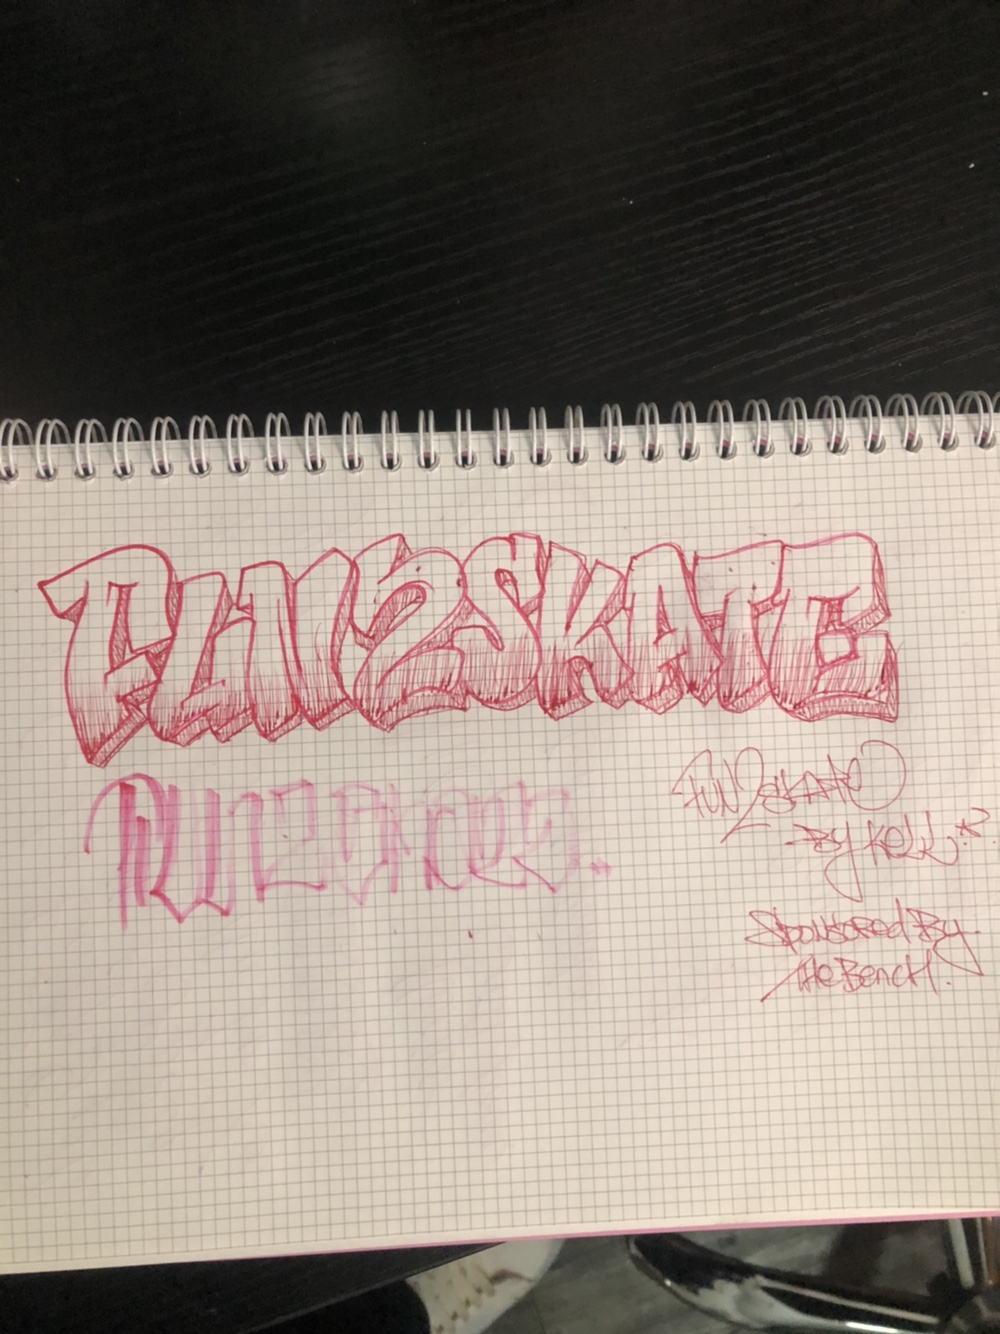 FUN2SKATE
FUN2SKATE
BY KELL*
SPONSORED BY
THE BENCH.